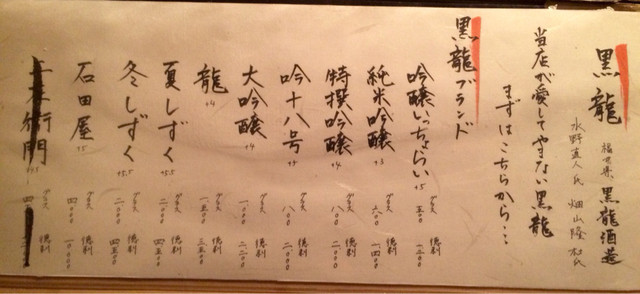 黒龍 福井県 黒龍酒造
水野直人氏 畑山隆和氏
当店が愛してやまない黒龍
まずはこちらから…
黒龍ブランド
吟醸いっちょらい +5 グラス 五〇〇 徳利 一二〇〇
純米吟醸 +3 グラス 六〇〇 徳利 一四〇〇
特撰吟醸 +4 グラス 八〇〇 徳利 二〇〇〇
吟十八号 +5 グラス 八〇〇 徳利 二〇〇〇
大吟醸 +4 グラス 一〇〇〇 徳利 二二〇〇
龍 +4 グラス 一五〇〇 徳利 三五〇〇
夏しずく +5.5 グラス 二〇〇〇 徳利 四五〇〇
冬しずく +5.5 グラス 二〇〇〇 徳利 四五〇〇
石田屋 +5 グラス 四〇〇〇 徳利 一〇〇〇〇
衛門 グラス 徳利